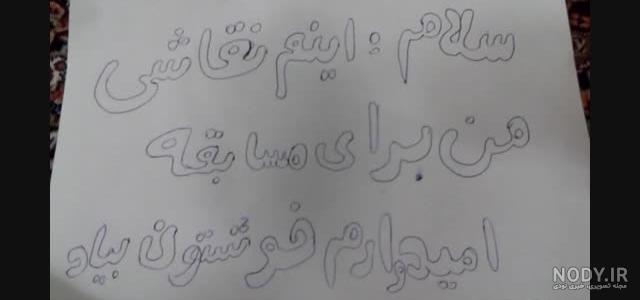 سلام : اینم نقاشی
من برای مسابقه
امیدوارم خوشتون بیاد
NODY.IR
مجله تصویری، خبری نودی